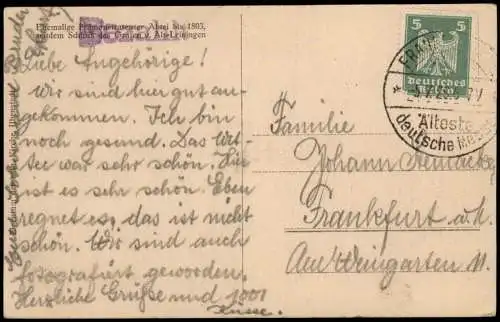 Ehemalige Prämonstratenser Abtei bis 1803,
seitdem Schloß des Grafen v. Alt-Leiningen
Liebe Angehörige!
Wir sind hier gut an-
gekommen. Ich bin
noch gesund. Das Wet-
ter war sehr schön. Hier
ist es sehr schön. Eben
regnet es, das ist nicht
schön. Wir sind auch
fotografiert geworden.
Herzliche Grüße und 1001
Küsse.
5 5
Deutsches
Reich
Älteste
deutsche Messe
Familie
Johann
Frankfurt a. M.
Am Weingarten 11.